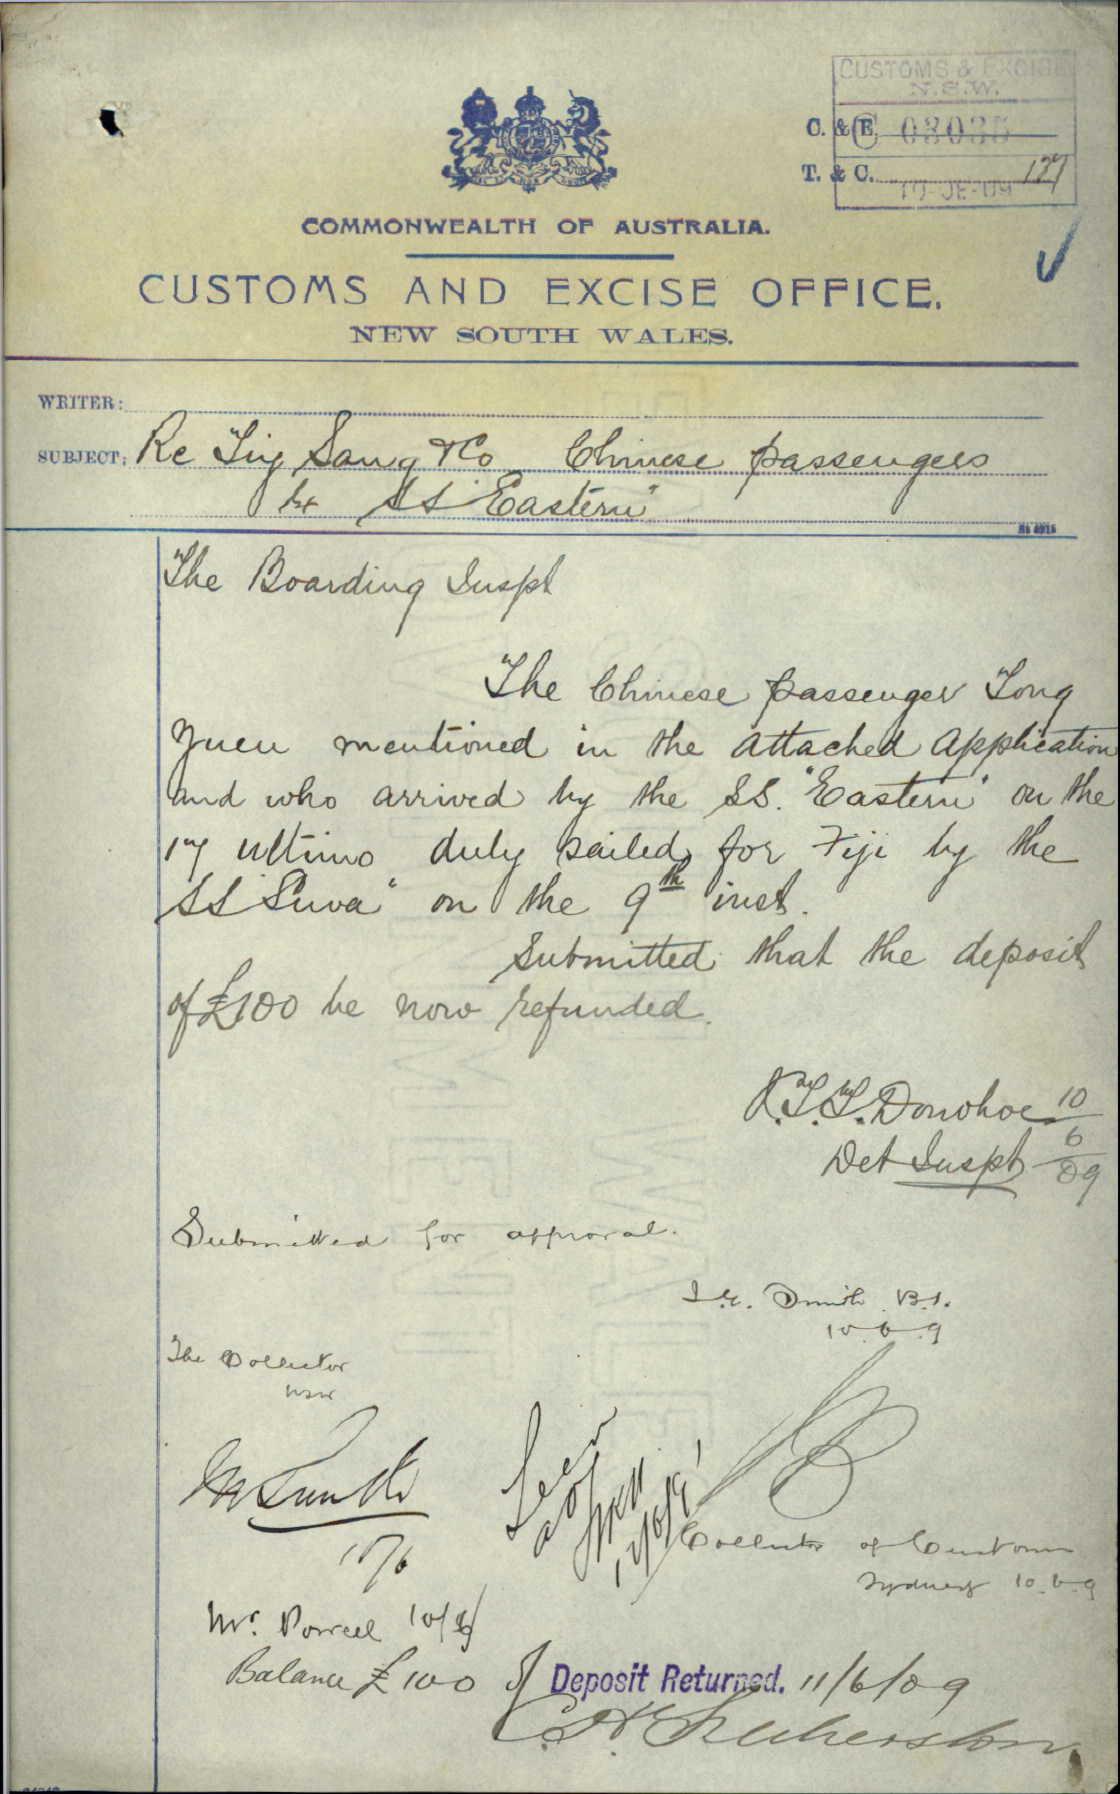 CUSTOMS & EXCISE
N.S.W.
C. & E. C 03035
T. & C. 127
10-JE-09
COMMONWEALTH OF AUSTRALIA.
CUSTOMS AND EXCISE OFFICE.
NEW SOUTH WALES.
WRITER:
SUBJECT: Re Tiy Sang & Co Chinese passengers
by SS "Eastern"
The Boarding Inspt
The Chinese passenger Tong
Yuen mentioned in the attached application
and who arrived by the SS. "Eastern" on the
17 ultimo duly sailed for Fiji by the
SS "Suva" on the 9th inst.
Submitted that the deposit
of £100 be now refunded.
Donohoe 10/6/09
Det Inspt
Submitted for approval.
Smith B.I.
10.6.9
The Collector
NSW
10/6
Seen
Collector of Customs
Sydney 10.6.9
Mr. Powell 10/6
Balance £100 of Deposit Returned. 11/6/09